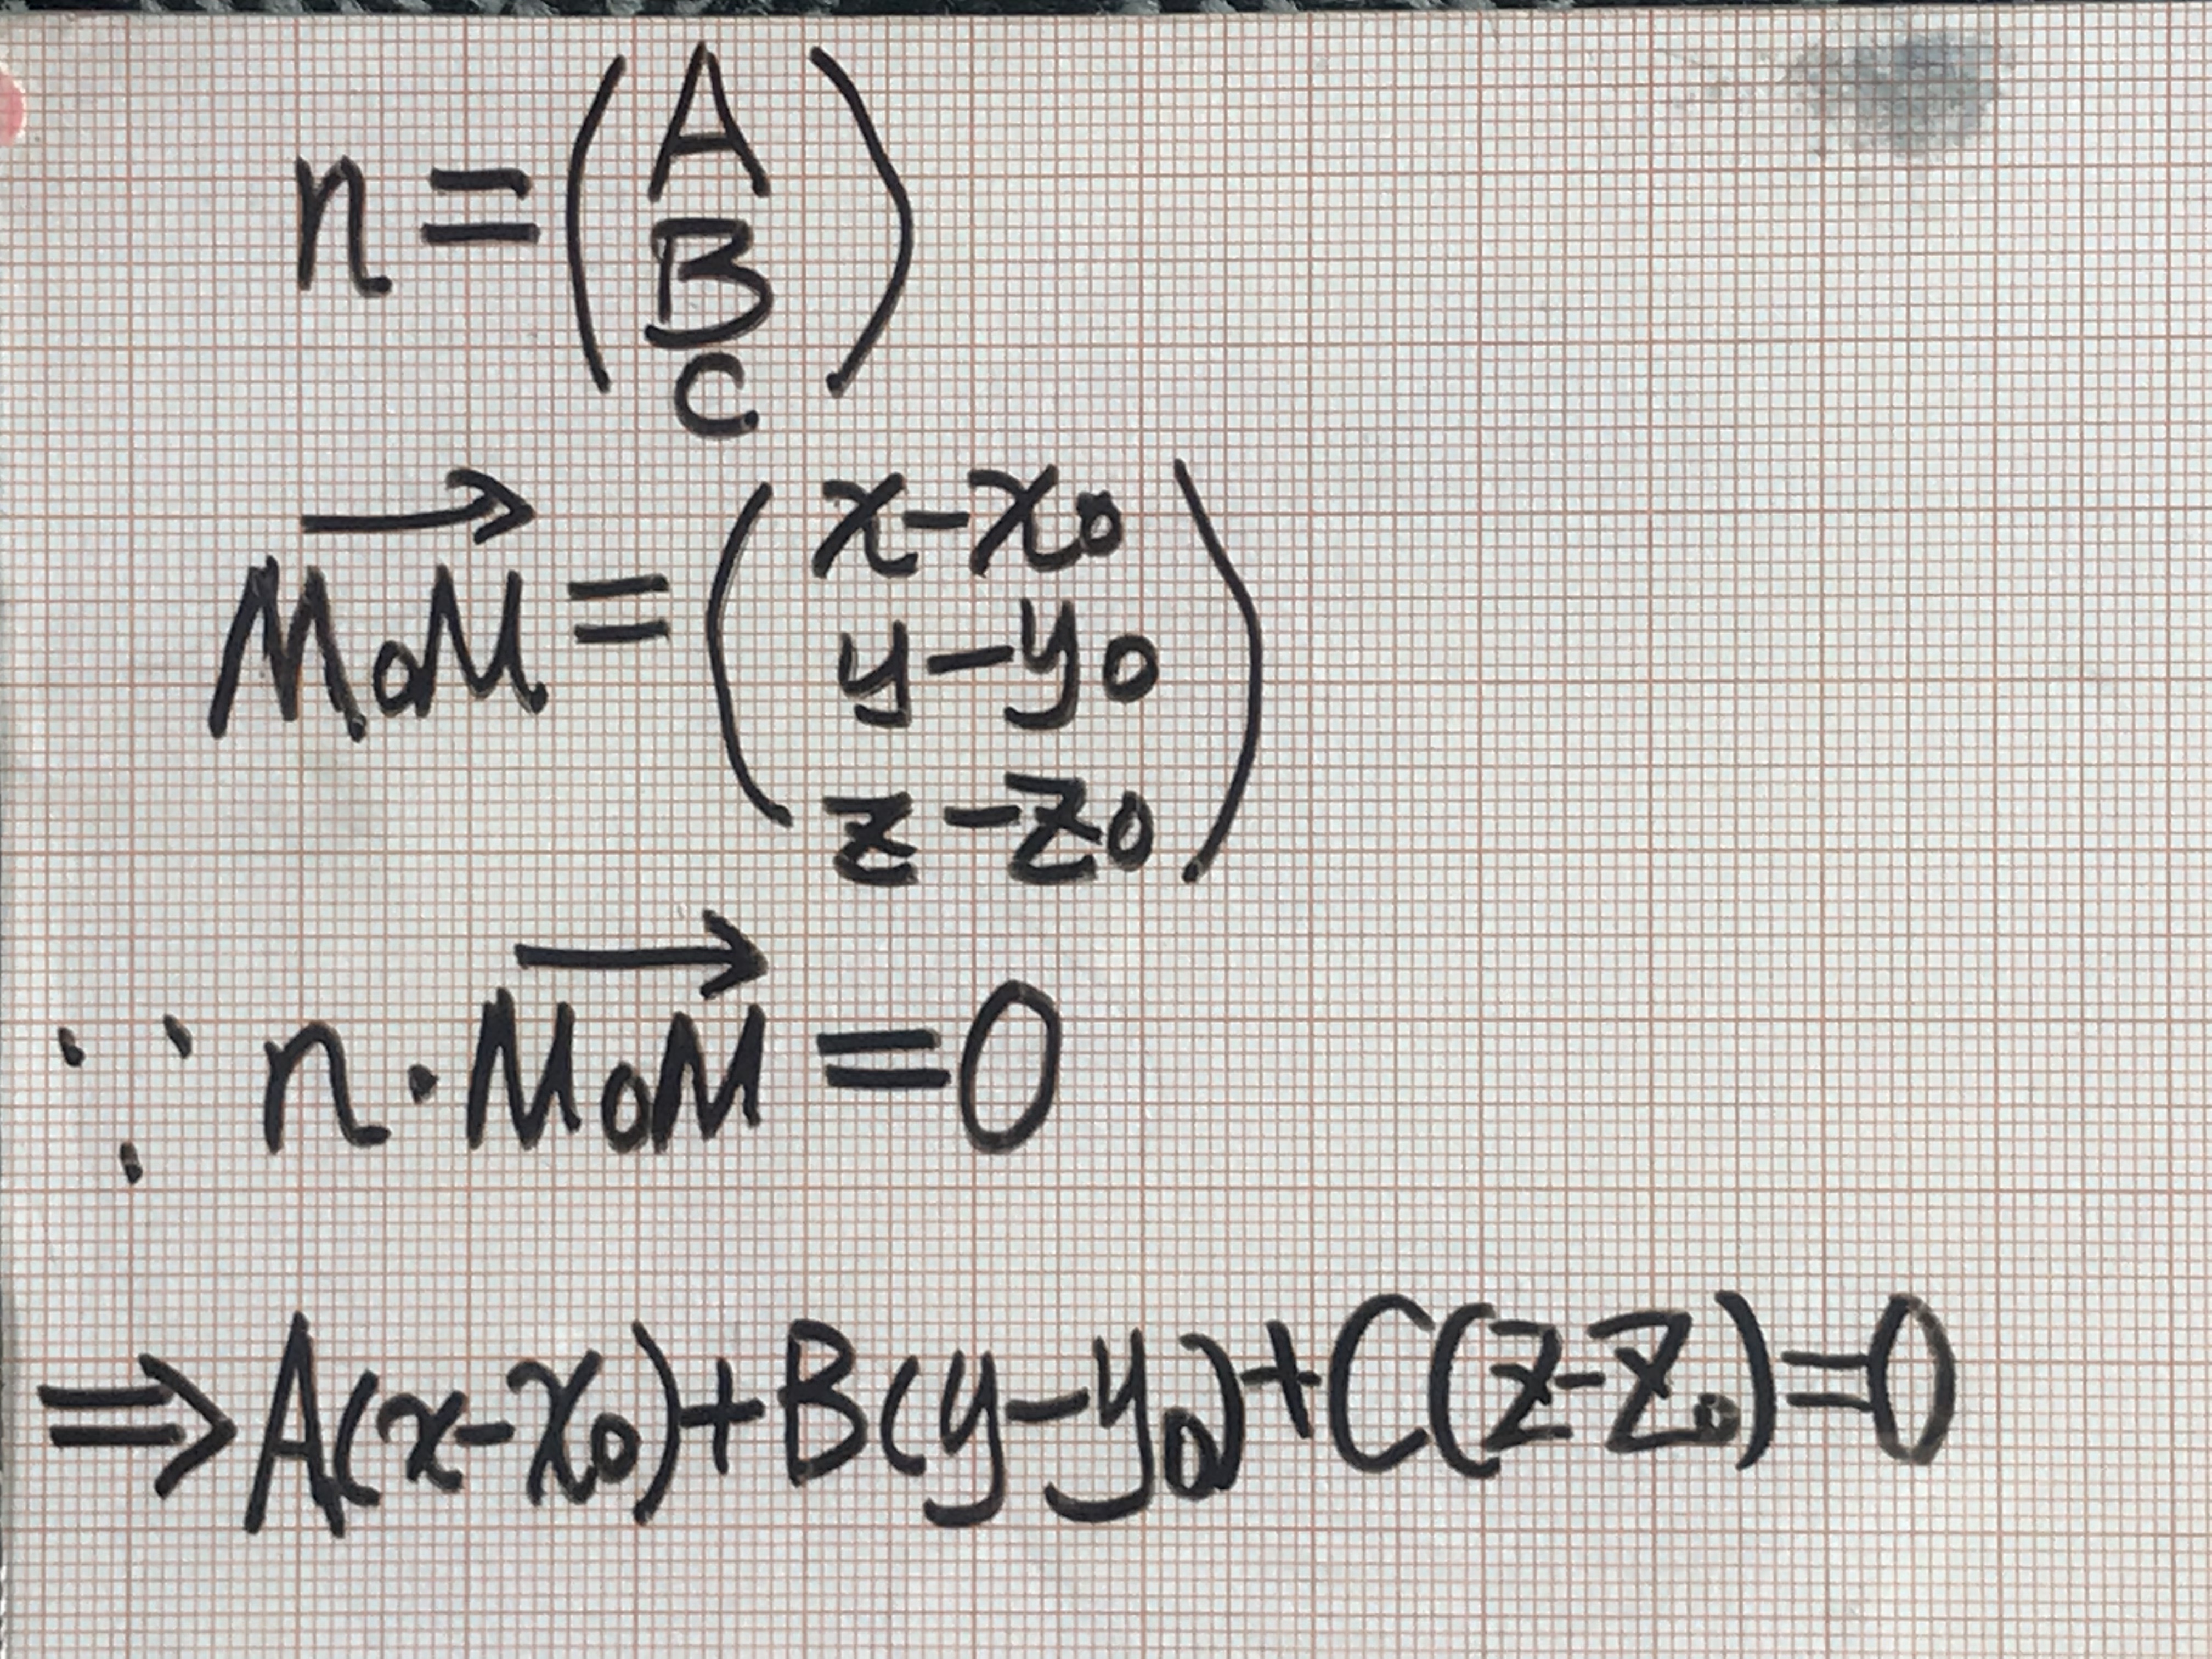 n = (A
B
C)
M₀M⃗ = (x-x₀
y-y₀
z-z₀)
∵ n·M₀M⃗ = 0
⇒ A(x-x₀)+B(y-y₀)+C(z-z₀)=0